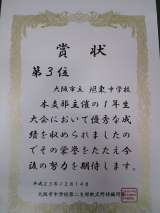 賞状
第3位
大阪市立 旭東中学校
本支部主催の1年生
大会において優秀な成
績を収められましたの
でその栄誉をたたえ今
後の努力を期待します。
平成23年12月14日
大阪市中学校第二支部軟式野球